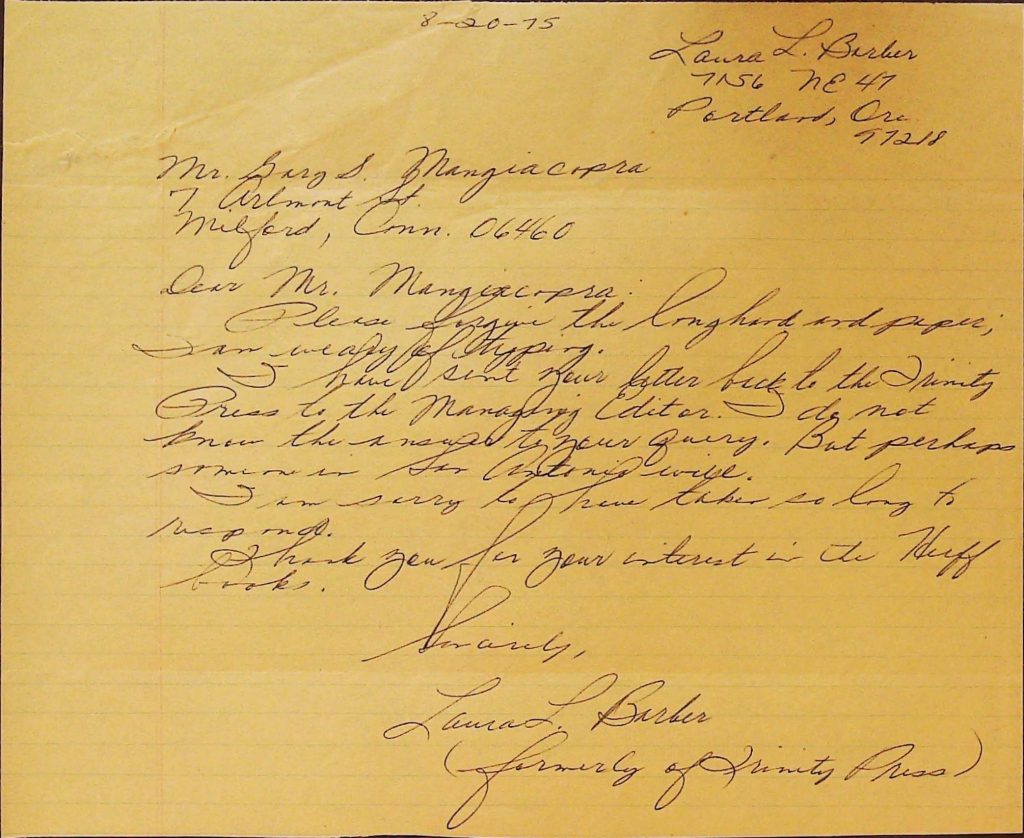 8-20-75
Laura L. Barber
7156 NE 47
Portland, Ore.
97218
Mr. Gary S. Mangiacopra
7 Arlmont St.
Milford, Conn. 06460
Dear Mr. Mangiacopra:
Please forgive the longhand and paper;
I am weary of typing.
I have sent your letter back to the Trinity
Press to the Managing Editor. I do not
know the answer to your query. But perhaps
someone in San Antonio will.
I am sorry to have taken so long to
respond.
Thank you for your interest in the Huff
books.
Sincerely,
Laura L. Barber
(formerly of Trinity Press)